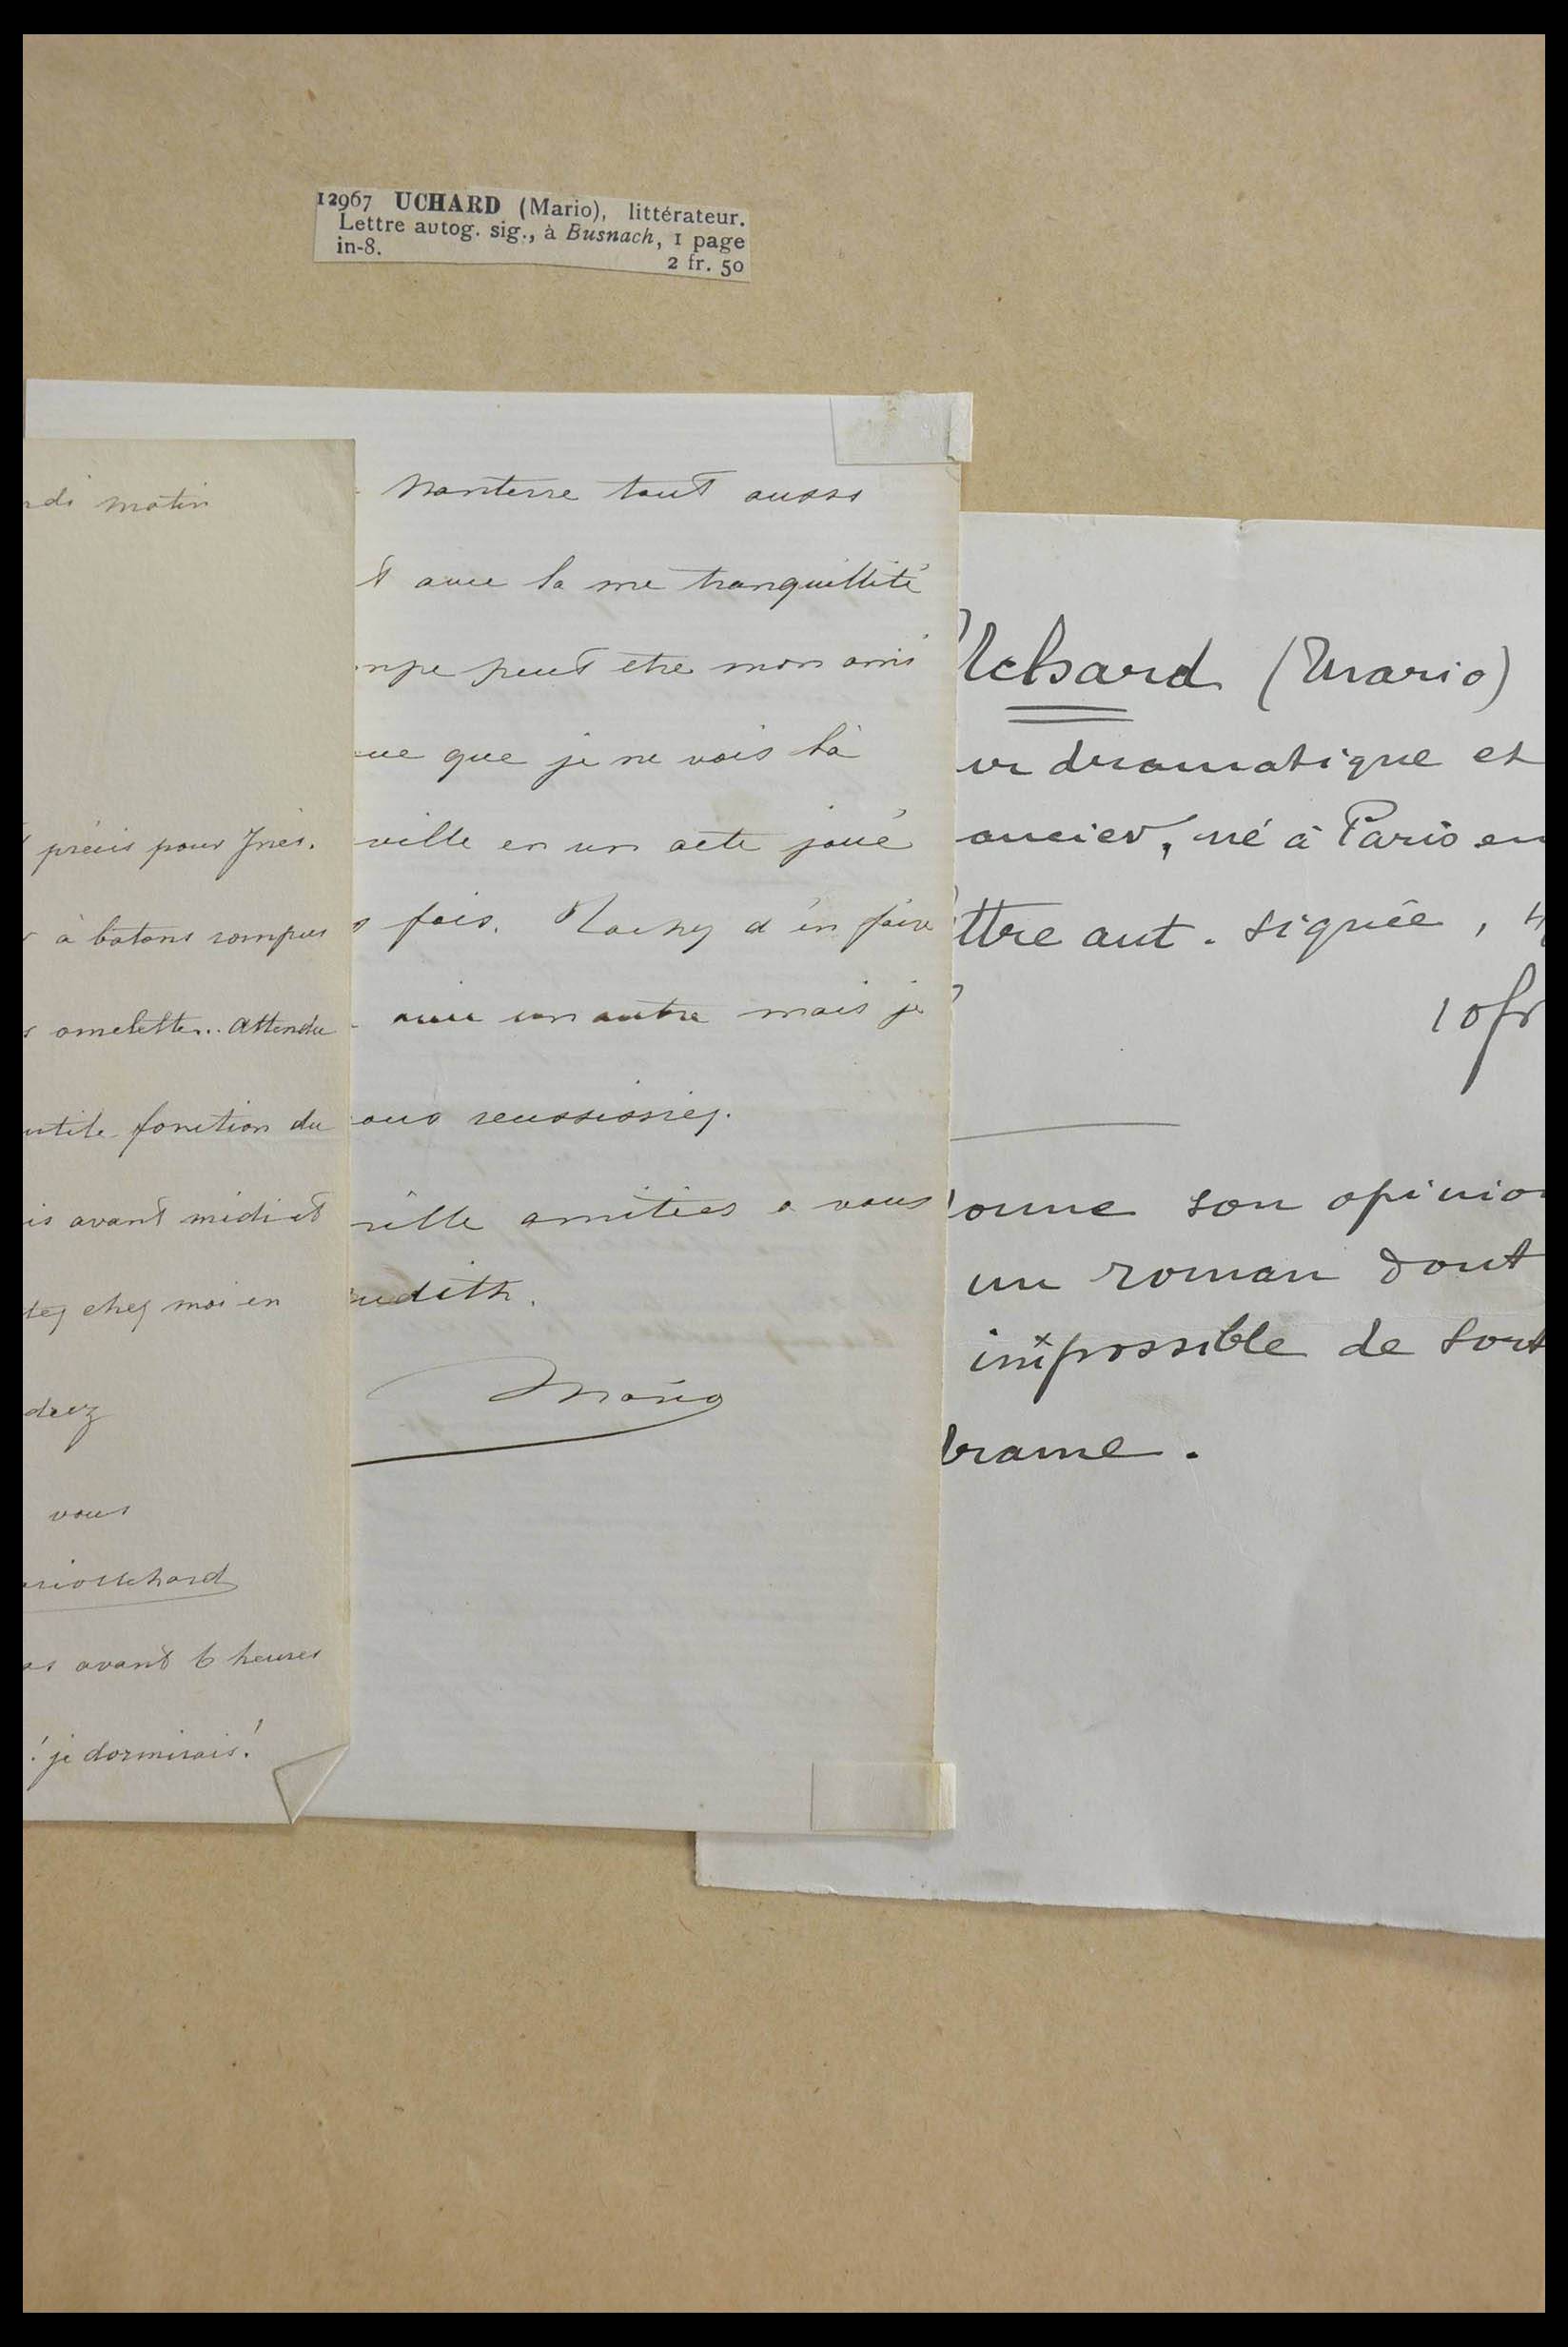 12967 UCHARD (Mario), littérateur.
Lettre autog. sig., à Busnach, 1 page
in-8. 2 fr. 50
di matin
précis pour Inès.
à batons rompus
omelette.. attendu
fonction du
is avant midi et
tez chez moi en
vous
Uchard
as avant 6 heures
! je dormirais!
Nanterre tout aussi
avec la me tranquillité
mpe peut etre mon ami
que je ne vois là
ville en un acte joué
fois. d'en faire
avec un autre mais je
ous reussissiez.
mille amitiés a vous
udith.
Mario
Uchard (Mario)
ur dramatique et
ancier, né à Paris en
ttre aut. signée, 4
10 fr
onne son opinion
un roman dont
impossible de sort
drame.